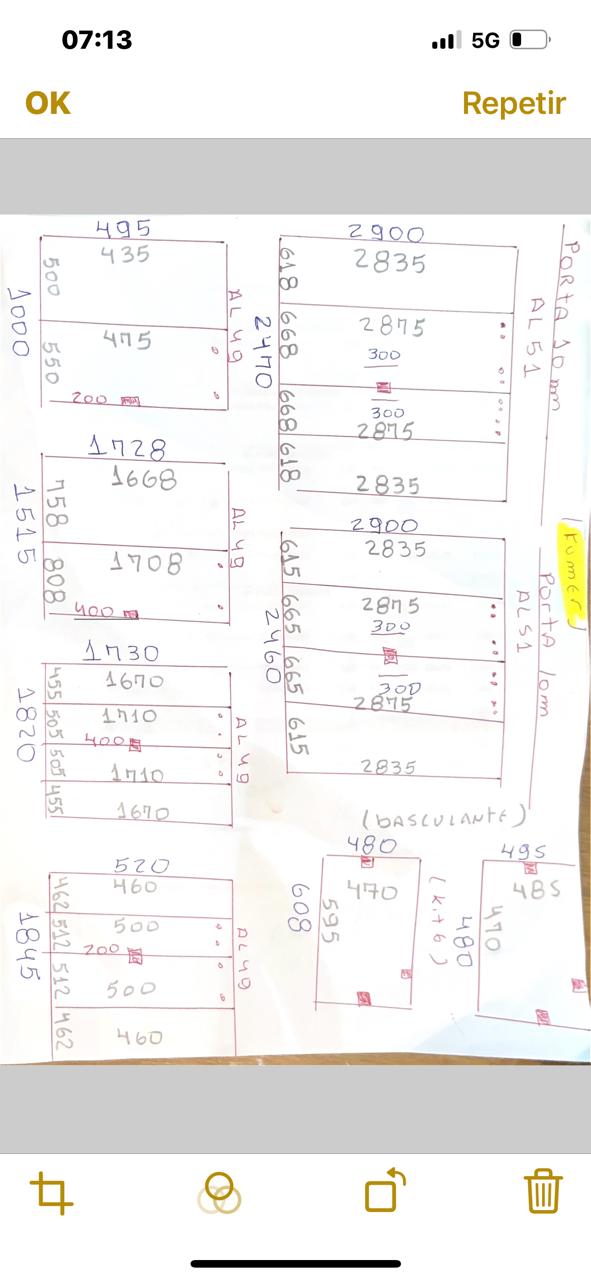 07:13
5G
OK
Repetir
495
435
500
1000
475
550
AL 49
200
1728
1668
758
1515
1708
808
AL 49
400
1730
1670
455
1820
1710
505
AL 49
400
505
1710
455
1670
520
460
462
1845
500
512
AL 49
200
512
500
462
460
2900
2835
618
PORTA 10 mm
AL 51
2470
668
2875
300
300
668
2875
618
2835
2900
2835
615
(FUMER)
PORTA 10m
AL51
2460
665
2875
300
300
665
2875
615
2835
(BASCULANTE)
480
470
608
595
(Kit 6)
495
485
480
470